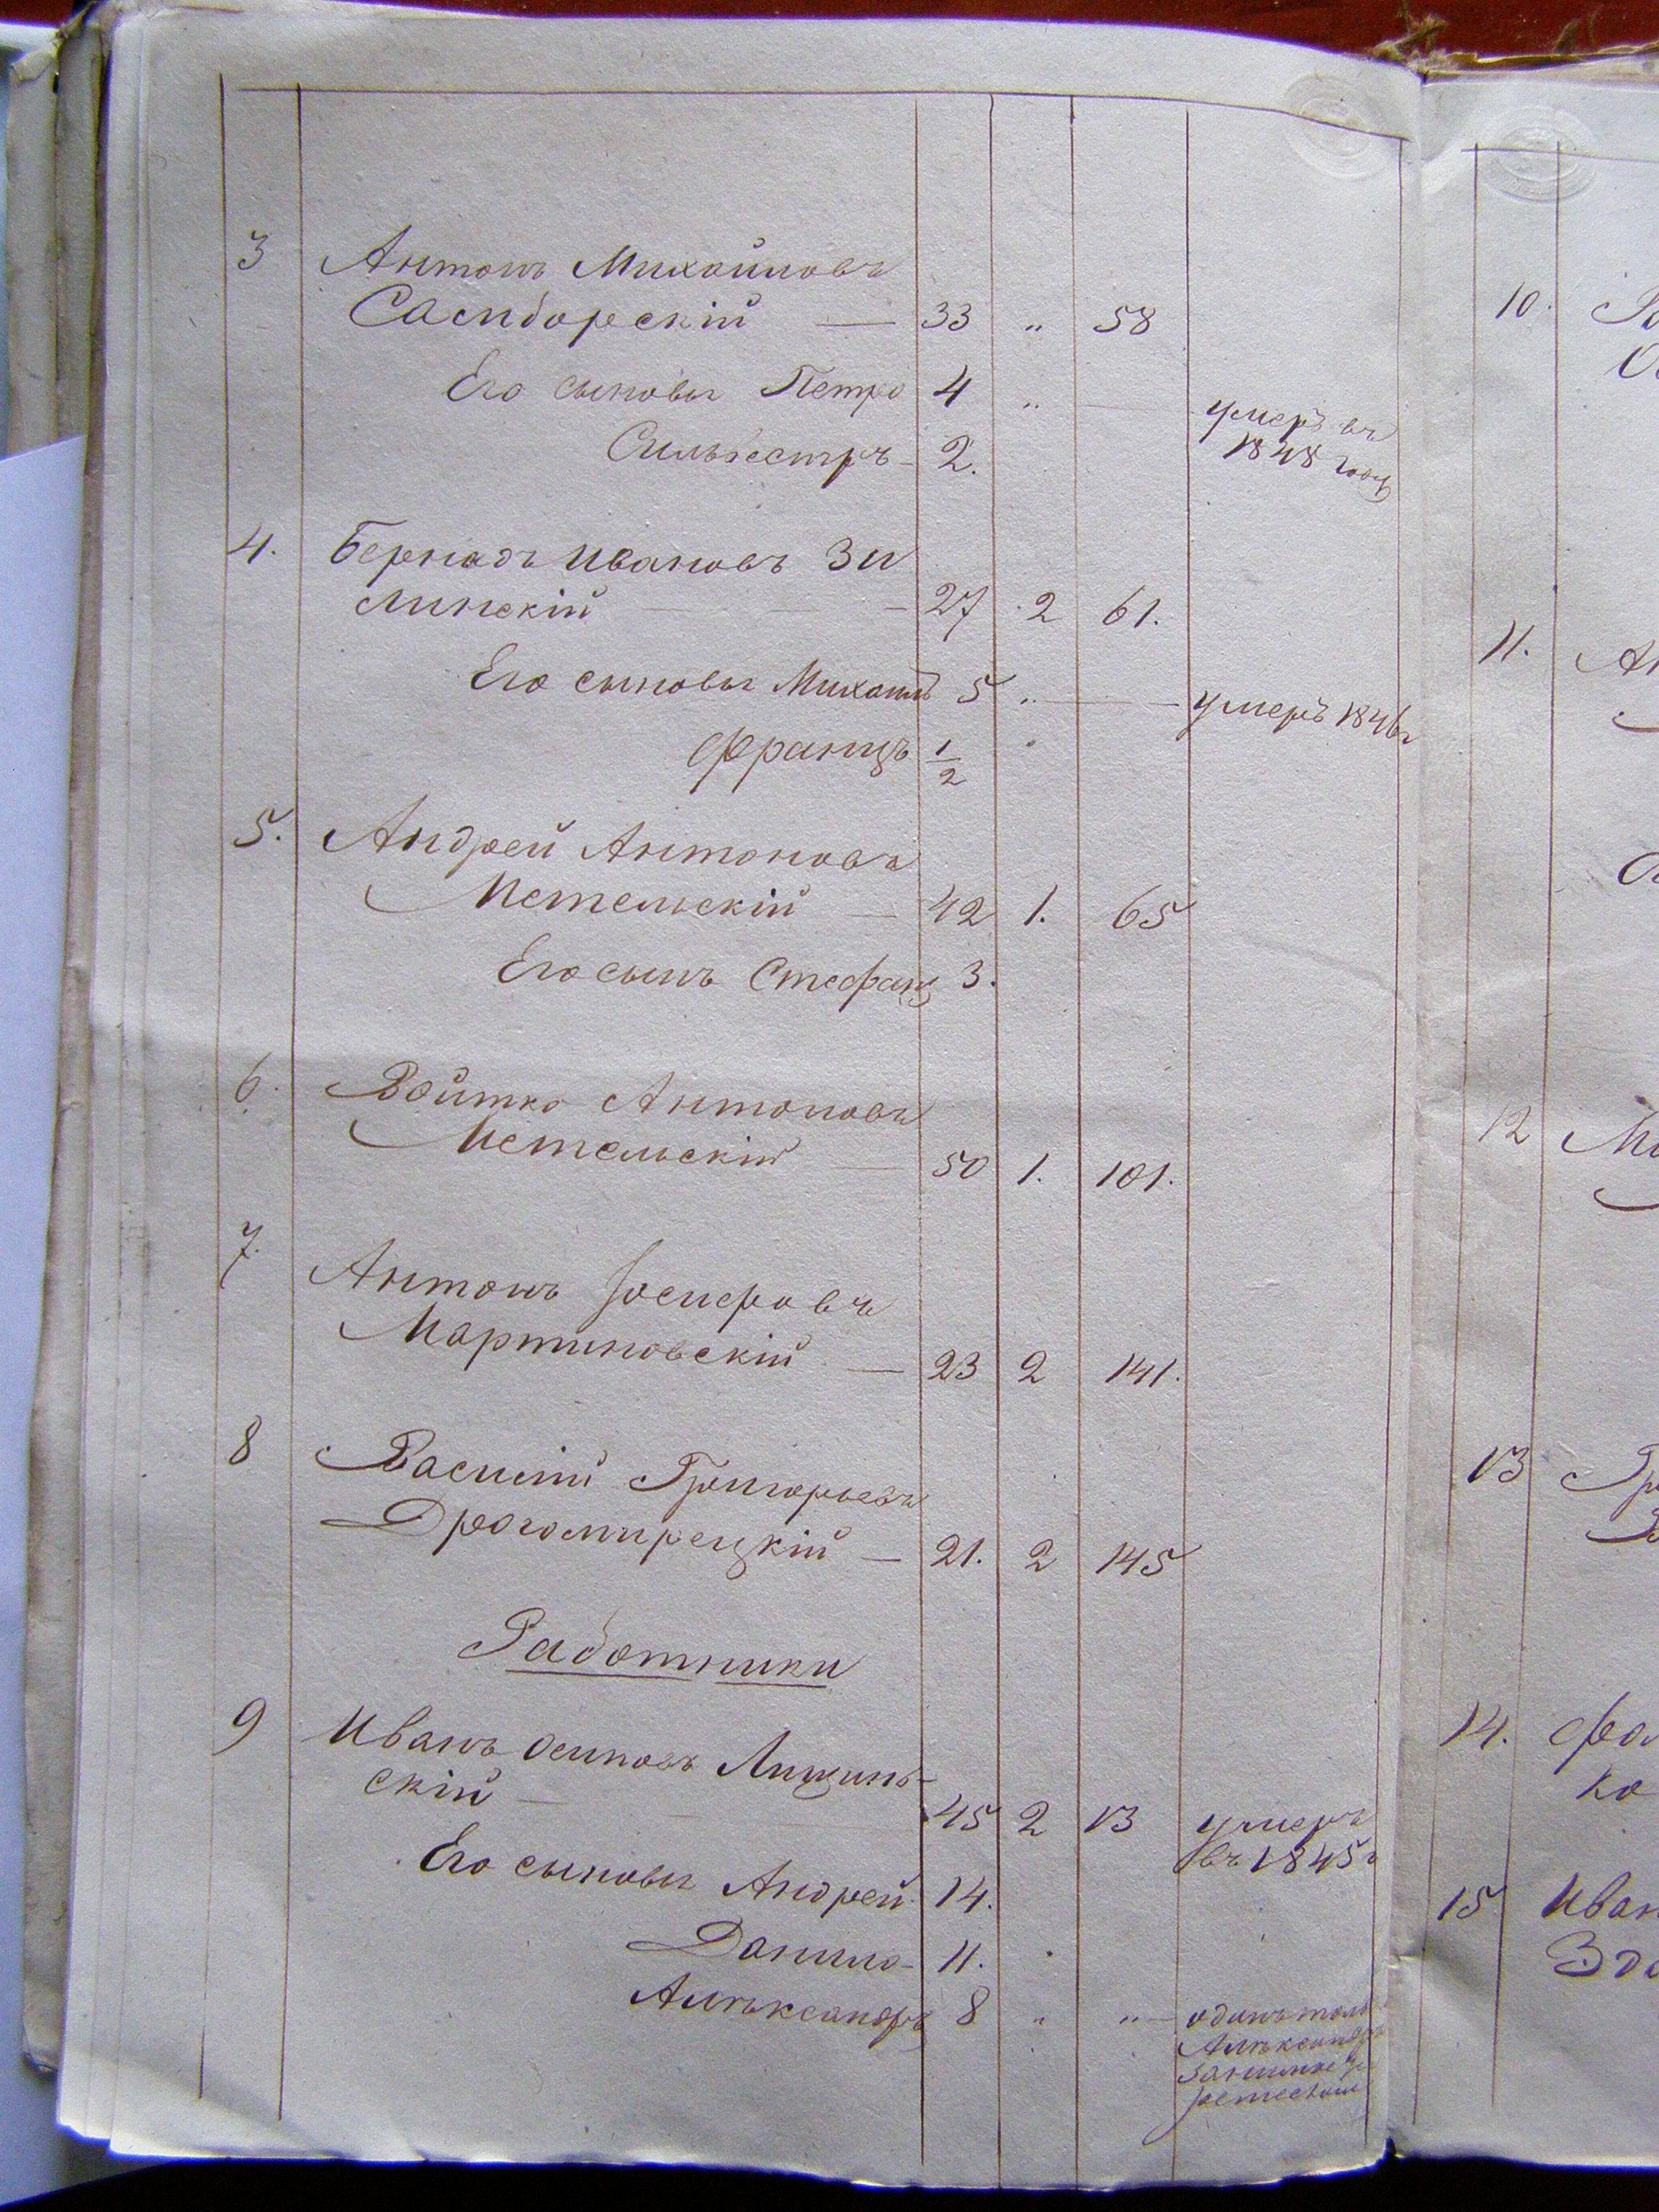 3 Антонъ Михайловъ
Самборскій — 33 „ 58
Его сыновья Петро 4 „ — умеръ въ
1848 году
Сильвестръ - 2.
4. Бернадъ Ивановъ Зи
линскій — — 27 2 61.
Его сыновья Михаилъ 5 „ — умеръ 1846г
Францъ 1/2 „
5. Андрей Антоновъ
Метельскій — 42 1. 65
Его сынъ Стефанъ 3.
6. Войтко Антоновъ
Метельскій — 50 1. 101.
7. Антонъ Іосиферовъ
Мартиновскій — 23 2 141.
8 Василій Григорьевъ
Дрогомирецкій — 21. 2 145
Работники
9 Иванъ Осиповъ Лищинь-
скій — 45 2 13 умеръ
въ 1845г
Его сыновья Андрей 14.
Данило - 11.
Алѣксандръ 8 „ „ — одинъ толь
Алѣксандръ
ремесломъ
10.
11.
12
13
14.
ко
15 Иван